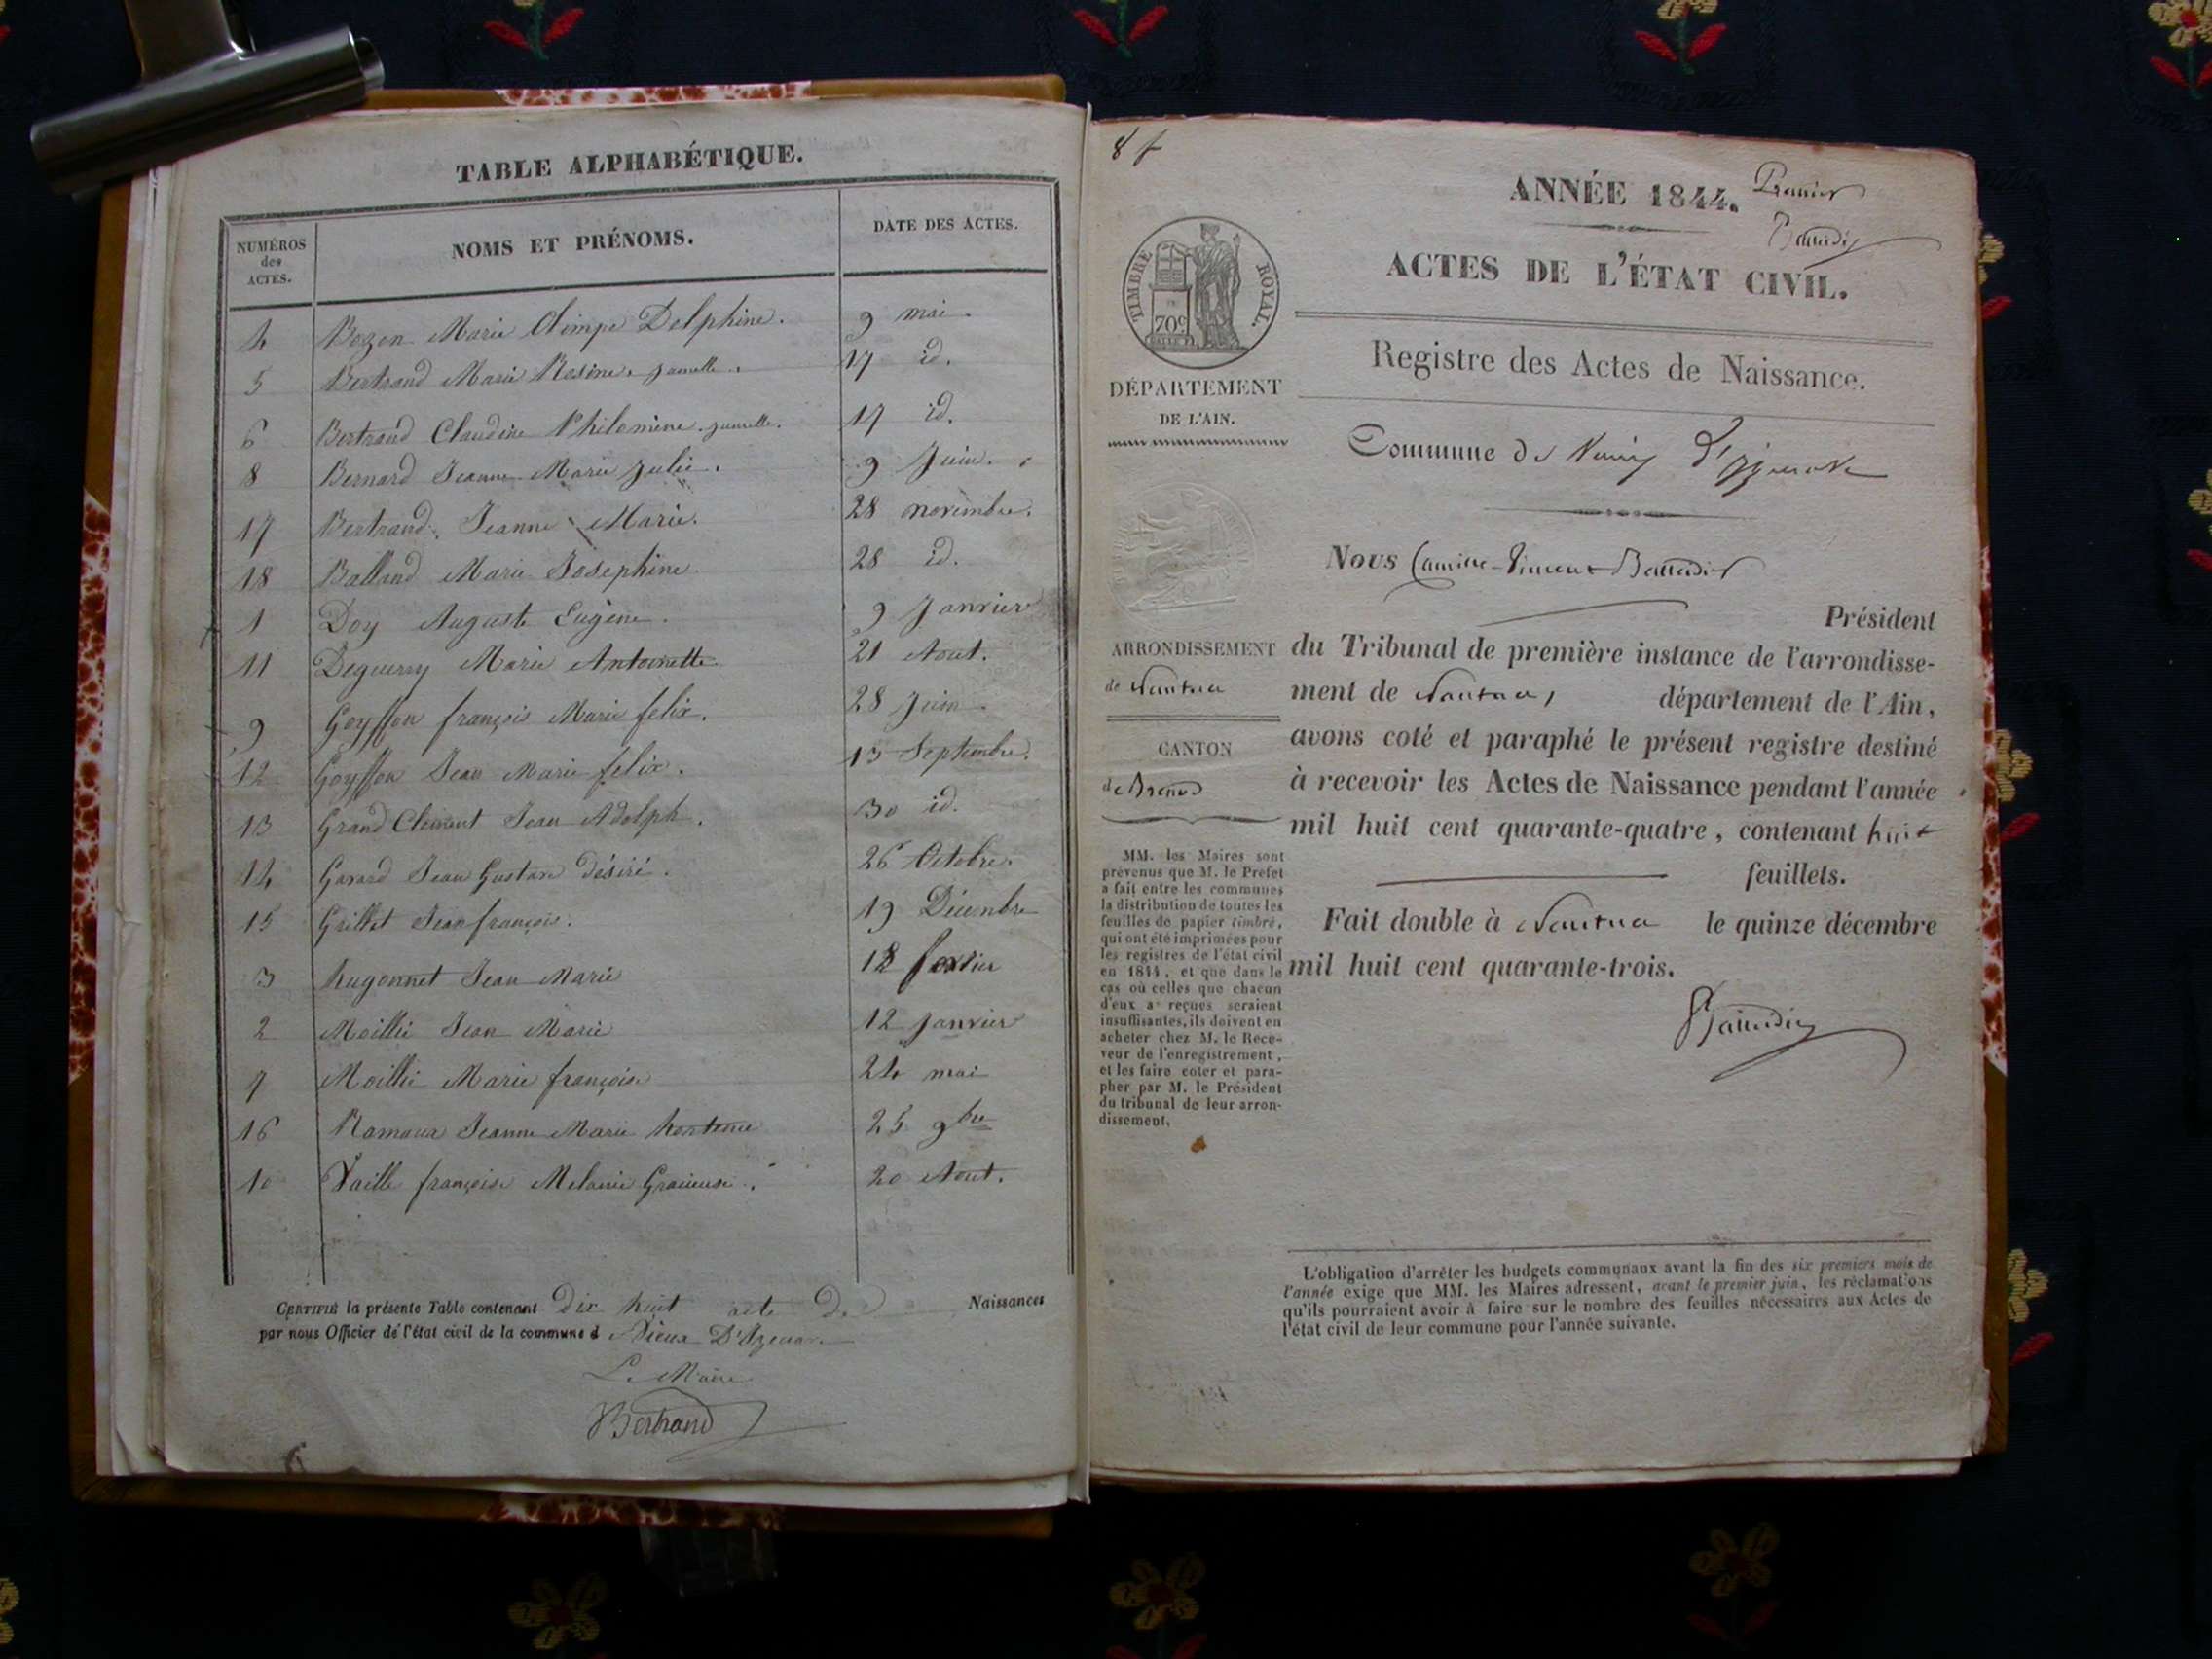 TABLE ALPHABÉTIQUE.
NUMÉROS des ACTES. NOMS ET PRÉNOMS. DATE DES ACTES.
4 Bozon Marie Olimpe Delphine. 9 mai.
5 Bertrand Marie Rosine. jumelle. 17 id.
6 Bertrand Claudine Philomine. jumelle. 17 id.
8 Bernard Jeanne Marie Julie. 9 Juin.
17 Bertrand Jeanne Marie. 28 novembre.
18 Balland Marie Josephine 28 id.
1 Doy Auguste Eugène. 9 Janvier
11 Deguerry Marie Antoinette 21 Aout.
9 Goyffon françois Marie felix. 28 Juin.
12 Goyffon Jean Marie felix. 13 Septembre.
13 Grand Clement Jean Adolph. 30 id.
14 Gavard Jean Gustave désiré. 26 Octobre.
15 Grillet Jean françois. 19 Décembre
3 hugonnet Jean Marie 18 fevrier
2 Moillie Jean Marie 12 Janvier
7 Moillie Marie françoise 24 mai
16 Ramaux Jeanne Marie hortence 25 9bre
10 Vaille françoise Melanie Gracieuse. 20 Aout.
CERTIFIÉ la présente Table contenant Dix huit acte De Naissances
par nous Officier de l'état civil de la commune d Vieux D'Izenave
Le Maire
Bertrand
8 f
ANNÉE 1844. Premier
ACTES DE L'ÉTAT CIVIL.
TIMBRE ROYAL.
70c
Registre des Actes de Naissance.
DÉPARTEMENT
DE L'AIN.
Commune de Vieux d'Izenave
Nous Camille-Vincent
Président
ARRONDISSEMENT
de Nantua
CANTON
de Brenod
du Tribunal de première instance de l'arrondisse-
ment de Nantua, département de l'Ain,
avons coté et paraphé le présent registre destiné
à recevoir les Actes de Naissance pendant l'année
mil huit cent quarante-quatre, contenant huit
feuillets.
Fait double à Nantua le quinze décembre
mil huit cent quarante-trois.
MM. les Maires sont
prévenus que M. le Préfet
a fait entre les communes
la distribution de toutes les
feuilles de papier timbré,
qui ont été imprimées pour
les registres de l'état civil
en 1844, et que dans le
cas où celles que chacun
d'eux a reçues seraient
insuffisantes, ils doivent en
acheter chez M. le Rece-
veur de l'enregistrement,
et les faire coter et para-
pher par M. le Président
du tribunal de leur arron-
dissement.
L'obligation d'arrêter les budgets communaux avant la fin des six premiers mois de
l'année exige que MM. les Maires adressent, avant le premier juin, les réclamations
qu'ils pourraient avoir à faire sur le nombre des feuilles nécessaires aux Actes de
l'état civil de leur commune pour l'année suivante.